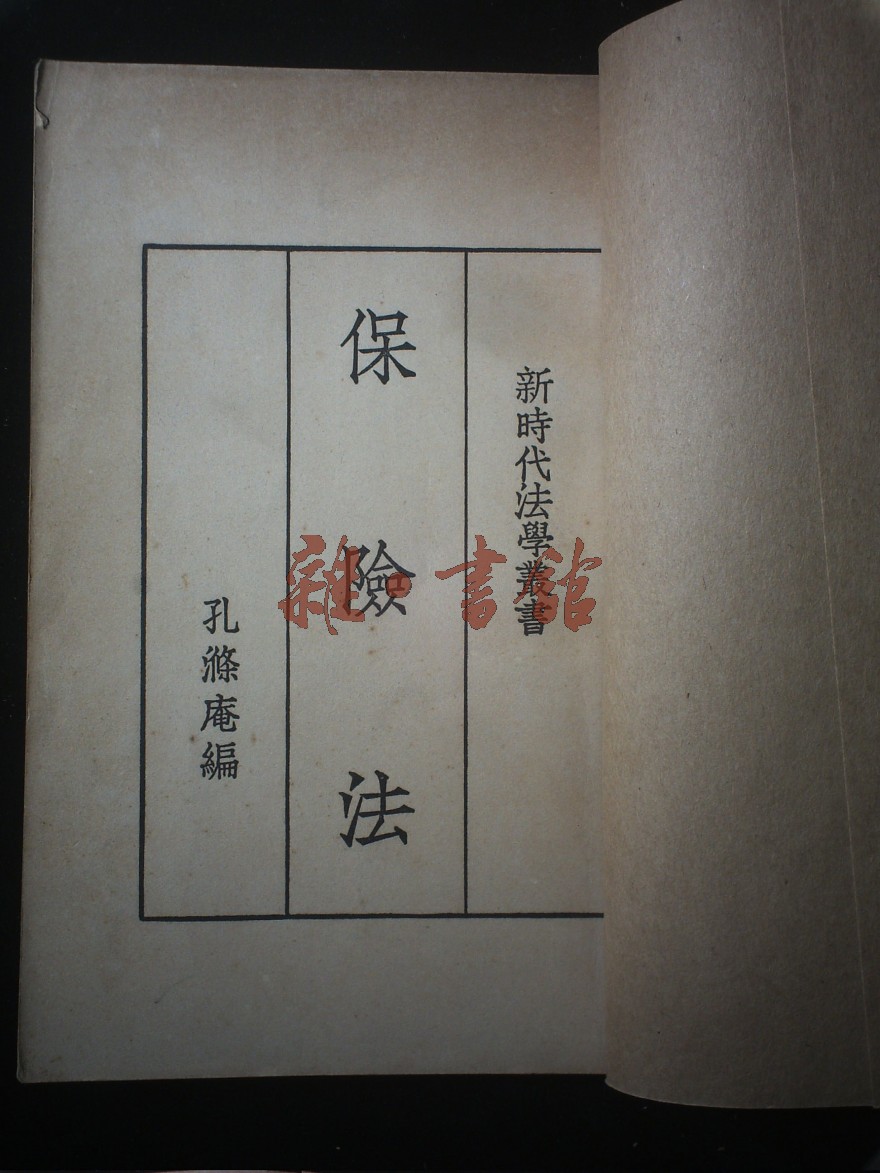 新時代法學叢書
保險法
孔滌庵編
雜·書館